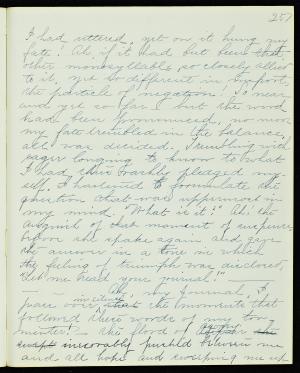 257
I had uttered, yet on it hung my
fate! Ah, if it had but been that
other monosyllable, so closely allied
to it, yet so different in import,
the particle of negation! So near
and yet so far! but the word
had been pronounced, no more
my fate trembled in the balance,
all was decided. Trembling with
eager longing to know to what
I had thus rashly pledged my-
self, I hastened to formulate the
question that was uppermost in
my mind. "What is it?" Ah, the
anguish of that moment of suspense
before she spake again and gave
the answer in a tone in which
the feeling of triumph was disclosed,
"Let me read your journal!"
Ah, my journal, I
pass over in silence the moments that
followed these words of my tor-
mentor! — the flood of
swept inexorably pushed between me
and all hope and sweeping me up